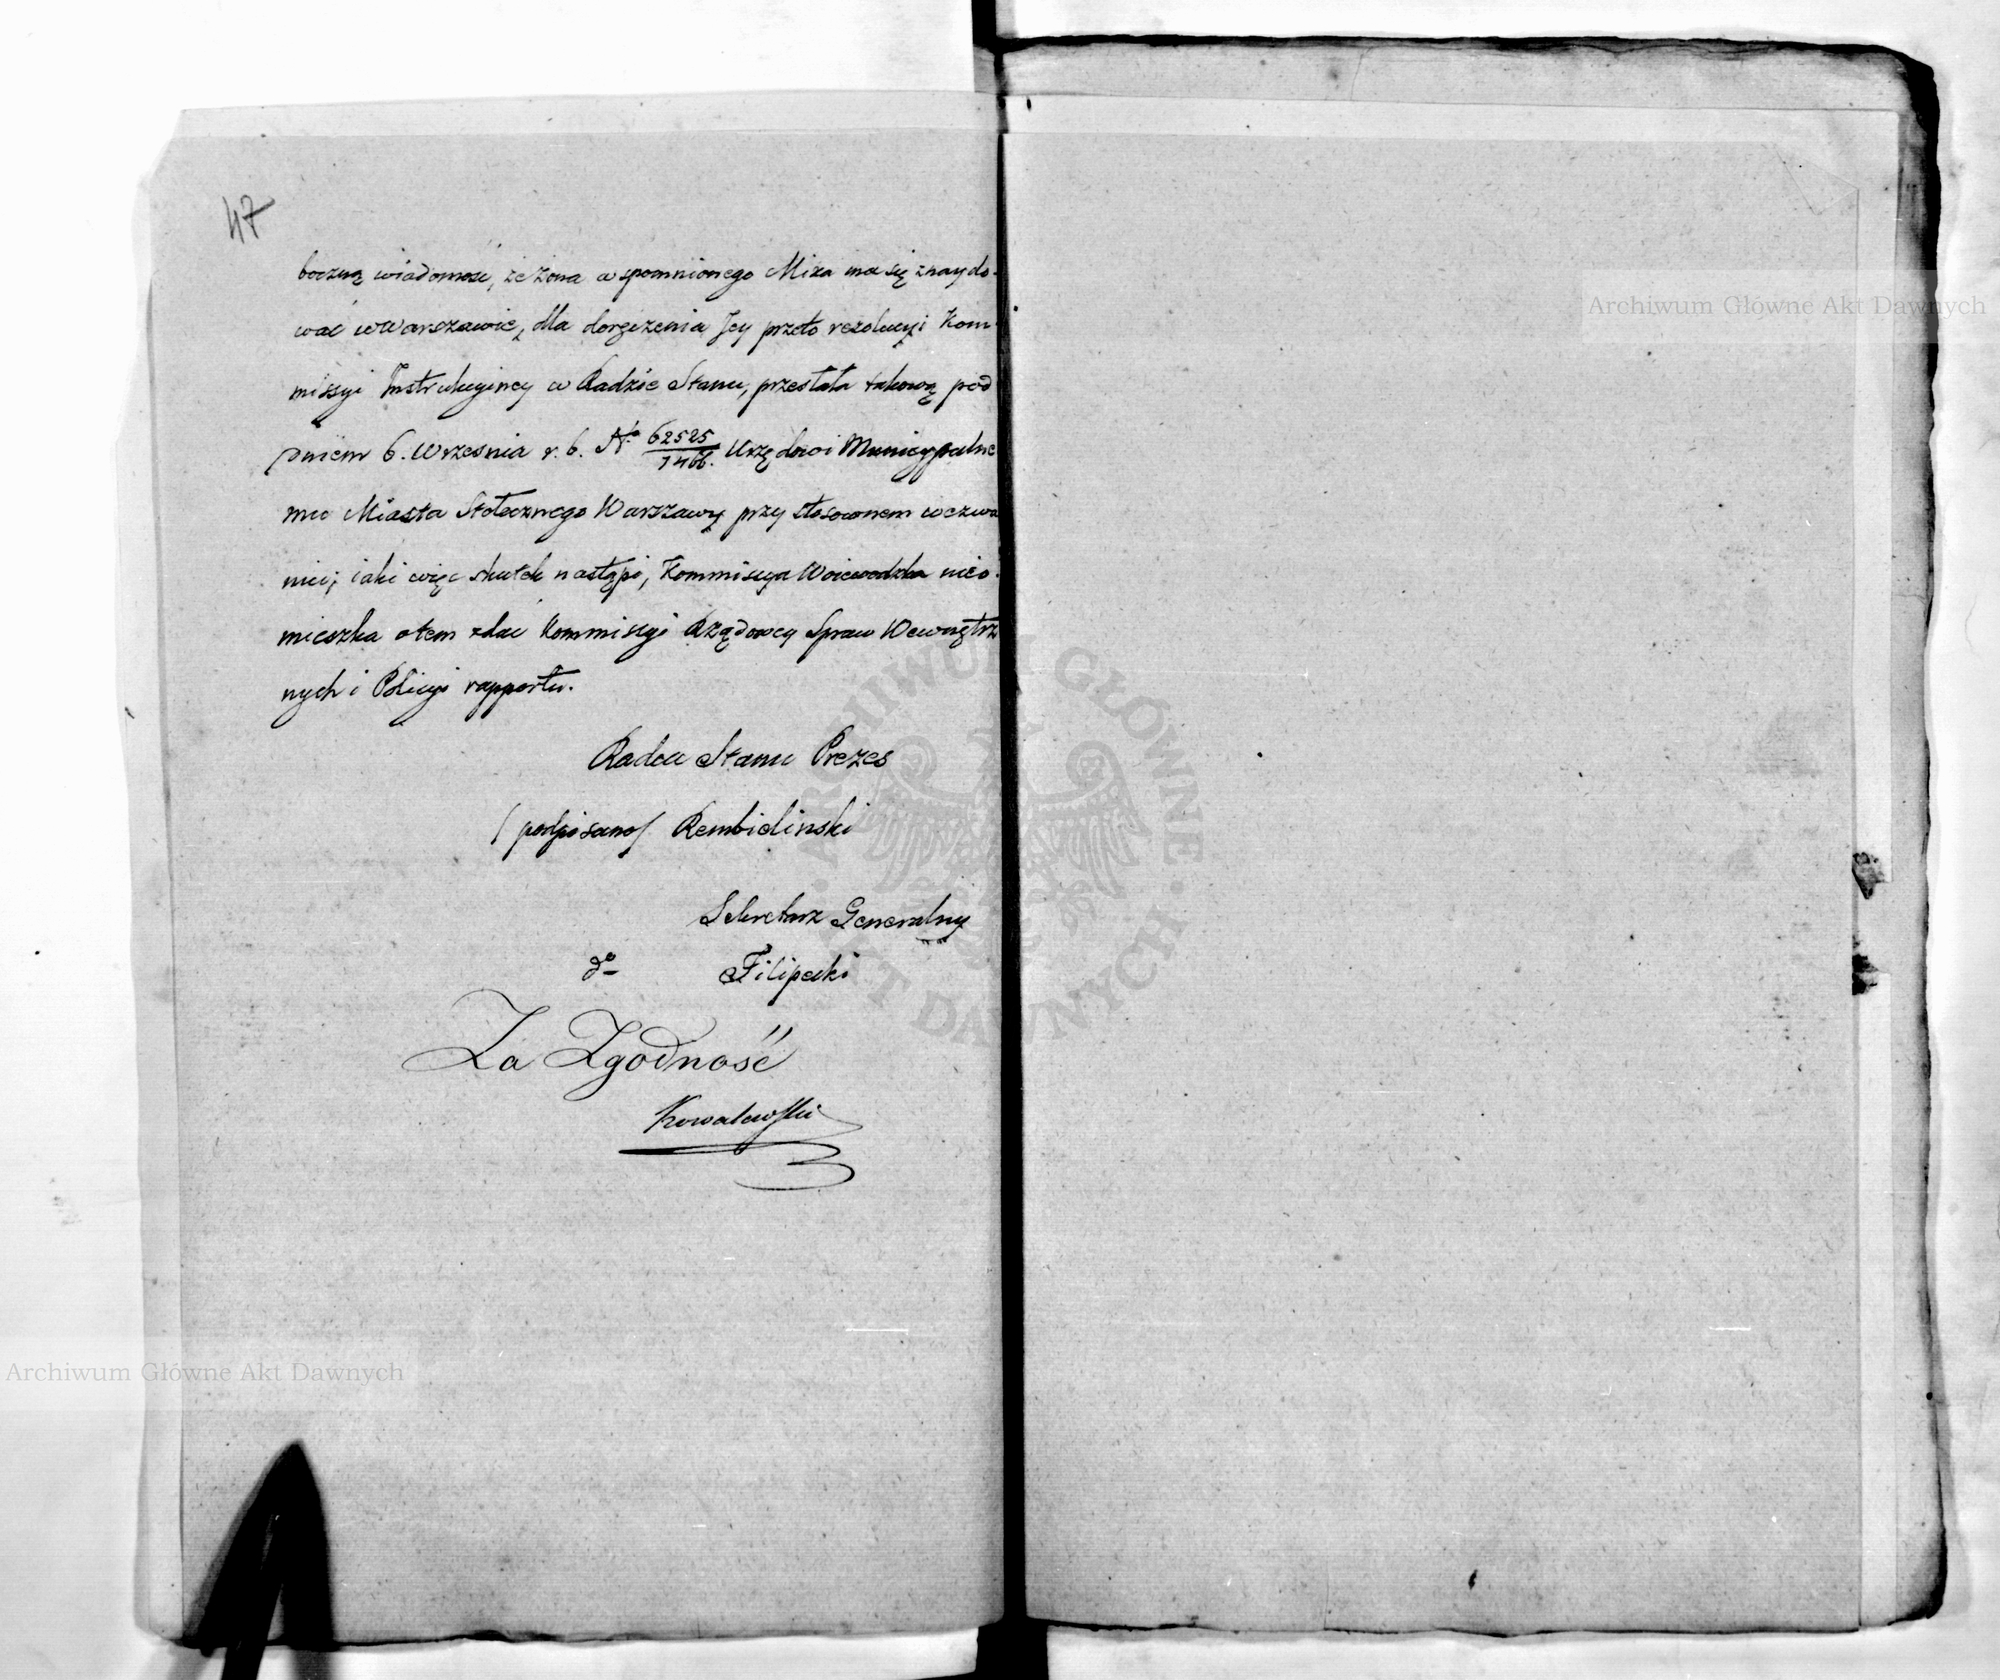 47
boczną wiadomość, że żona wspomnionego Miza ma się znaydo-
wać w Warszawie, dla doręczenia Jey przeto rezolucyi Kom-
missyi Instrukcyiney w Radzie Stanu, przesłała takową pod
Dniem 6. Września r. b. No 62525/7466. Urzędowi Municypalne
mu Miasta Stołecznego Warszawy przy stosownem wezwa
niu; iaki więc skutek nastąpi, Kommissya Woiewodzka nieo-
mieszka otem zdać Kommissyi Rządowey Spraw Wewnętrz
nych i Policyi rapportu.
Radca Stanu Prezes
/podpisano/ Rembieliński
Sekretarz Generalny
do Filipecki
Za Zgodność
Kowalewski
Archiwum Główne Akt Dawnych
Archiwum Główne Akt Dawnych
ARCHIWUM GŁÓWNE AKT DAWNYCH